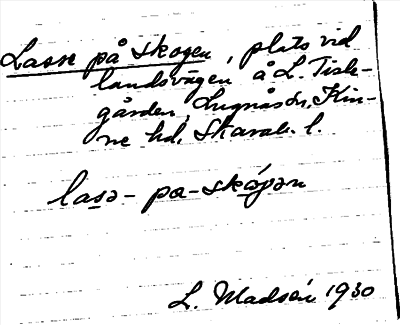 Lasse på skogen, plats vid
landsvägen å L. Tisk-
gården, Lugnås sn, Kin-
ne hd, Skarab. l.
lasə- pa- skógən
L. Madsén 1930